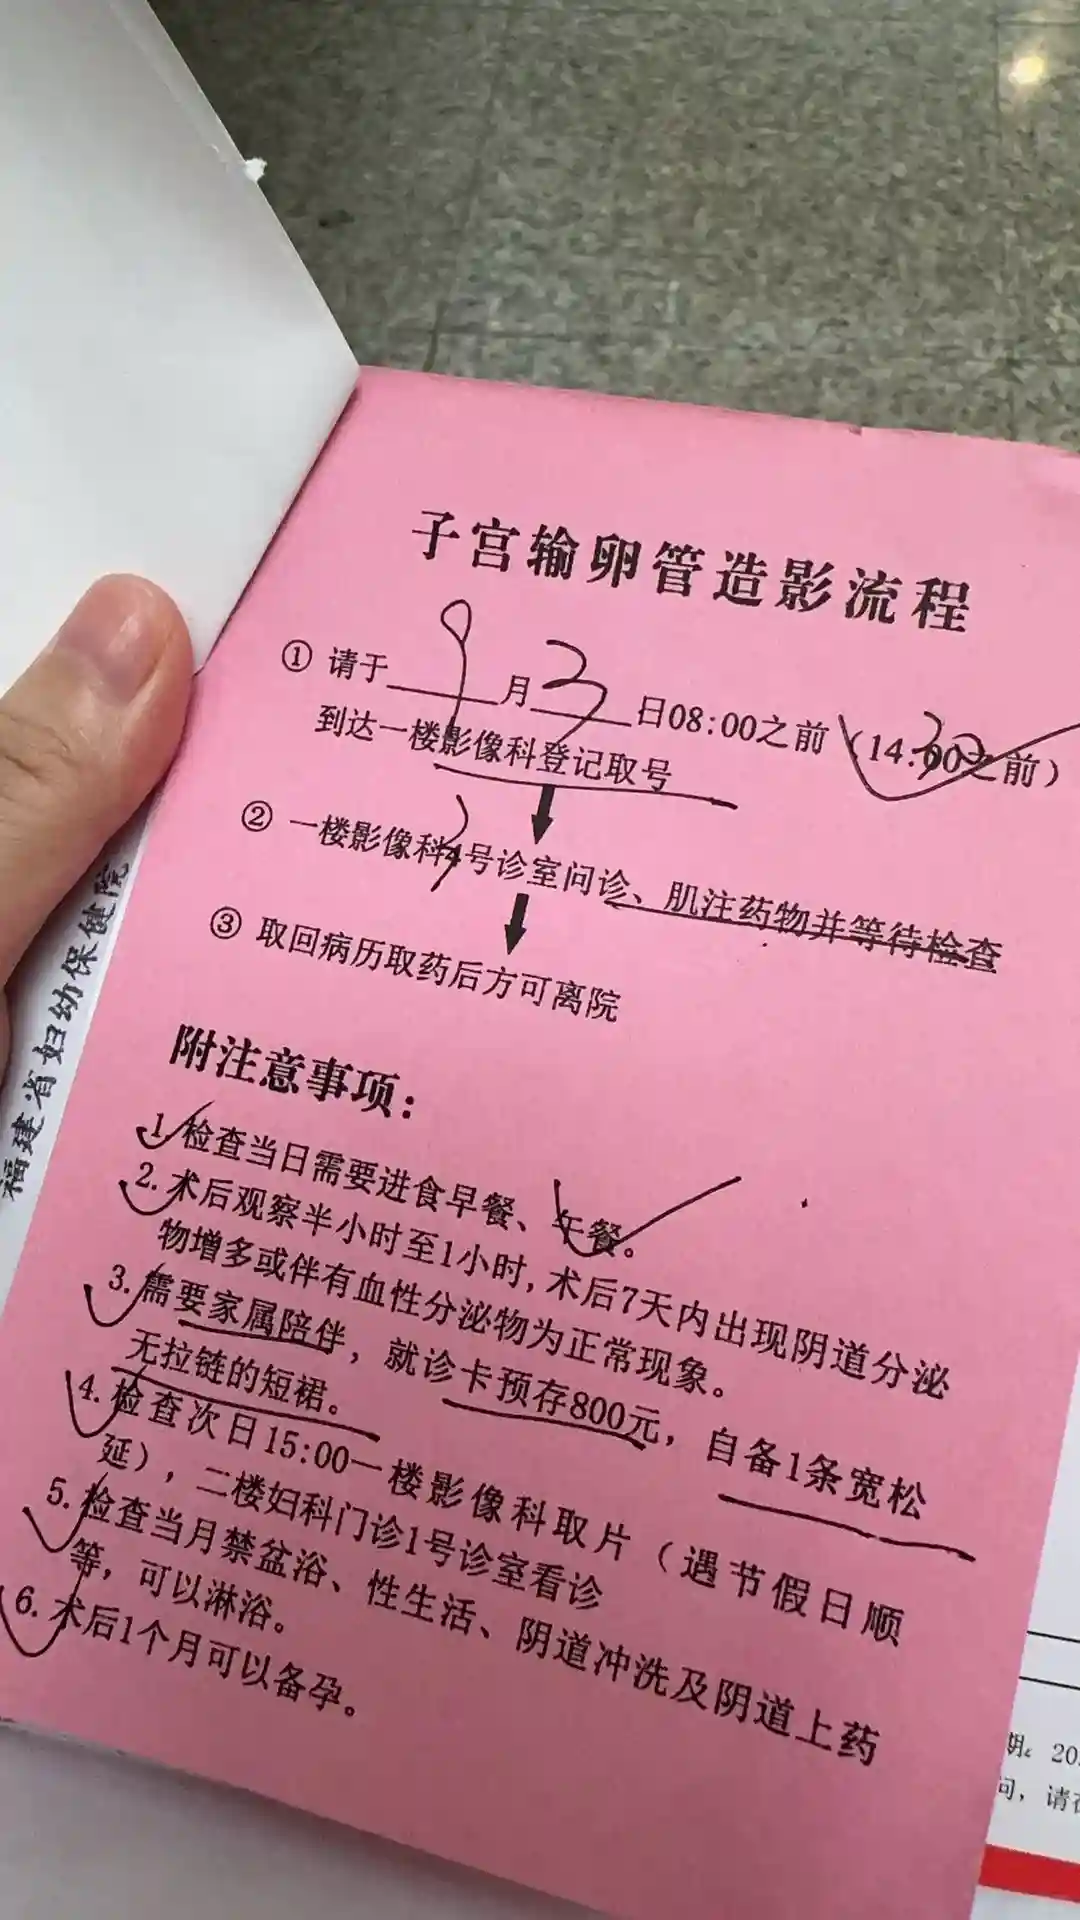 子宫输卵管造影流程
① 请于 9 月 3 日08:00之前 (14:30之前)
到达一楼影像科登记取号
② 一楼影像科号诊室问诊、肌注药物并等待检查
③ 取回病历取药后方可离院
附注意事项:
1.检查当日需要进食早餐、午餐。
2.术后观察半小时至1小时,术后7天内出现阴道分泌
物增多或伴有血性分泌物为正常现象。
3.需要家属陪伴,就诊卡预存800元,自备1条宽松
无拉链的短裙。
4.检查次日15:00一楼影像科取片(遇节假日顺
延),二楼妇科门诊1号诊室看诊
5.检查当月禁盆浴、性生活、阴道冲洗及阴道上药
等,可以淋浴。
6.术后1个月可以备孕。
福建省妇幼保健院
期: 20
问,请